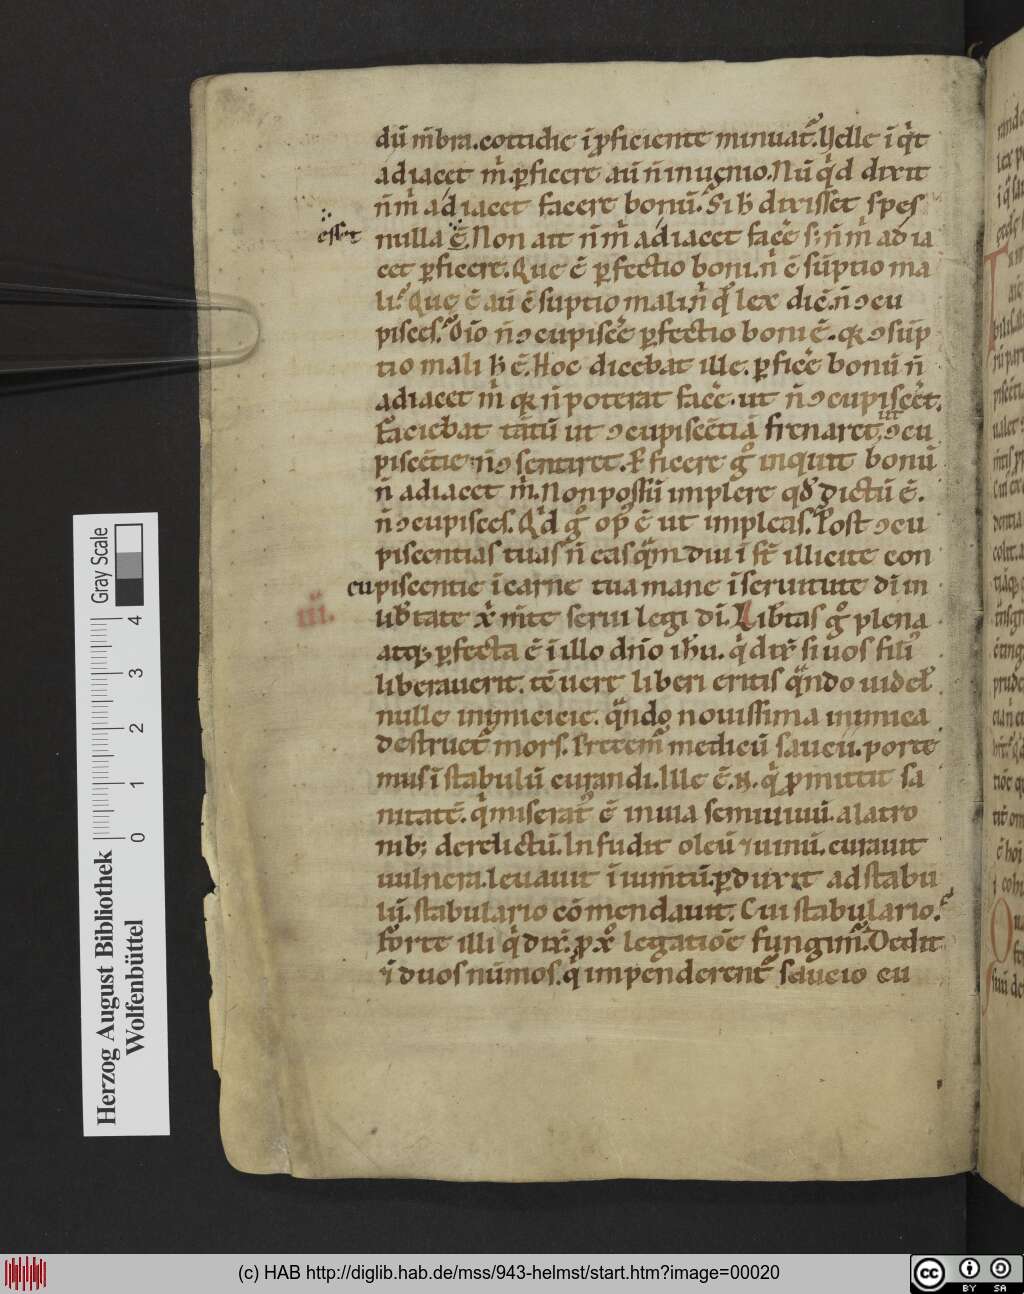 dū m̄bra. cottidie īꝓficiente minuat᷑. Velle ī q̇t
adiacet ṁ. ꝑficere aū n̄ inuenio. Nū q̇d dixit
n̄ ṁ adiacet facere bonū. Si h̄ dixisset spes
esset nulla ē. Non ait n̄ ṁ adiacet facē s; n̄ ṁ adia
cet ꝑficere. Que ē ꝑfectio boni. n̄ ē sūptio ma
li. Que ē aū ēsūptio mali. n̄ q̇ lex diē. n̄ ↄcu
pisces. Oīo n̄ ↄcupiscē ꝑfectio boni ē. qꝛ ↄsūp
tio mali h̄ ē. Hoc dicebat ille. ꝑficē bonū n̄
adiacet ṁ qꝛ n̄ poterat facē. ut n̄ ↄcupiscēt.
Faciebat tātū ut ↄcupiscētiā frenaret. ut ↄcu
piscētie n̄ ↄsentiret. Ꝑficere gͦ inquit bonū
n̄ adiacet ṁ. Non possū implere qd̄ dictū ē.
n̄ ↄcupisces. Qͥd gͦ op̄ ē ut impleas. Post ↄcu
piscentias tuas n̄ eas. Qm̄ diu ī st̄ illicite con
cupiscentie ī carne tua mane ī seruitute dī in
.iii. lib̄tate x̄ m̄te serui legi dī. Lib̄tas gͦ plena
atqꝫ ꝑfecta ē ī illo dn̄o ih̄u. q̇ dix̄ si uos fili
liberauerit. tē uere liberi eritis qn̄do uidet᷑
nulle inimicicie. qn̄do nouissima inimica
destruet᷑ mors. Pretem̄ medicū sauciī. porte
mus ī stabulū curandi. Ille ē. n̄. q̇ ꝓmittit sa
nitatē. q̇ miserat᷑ ē in uia semiuiuū. a latro
nibꝫ derelictū. Infudit oleū ⁊ uinū. curauit
uulnera. leuauit ī iumtū. ꝑduxit ad stabu
lū. stabulario cōmendauit. Cui stabulario.
forte illi q̇ dix̄. ꝓ x̄o legatiōe fungim᷑. Dedit
⁊ duos nūmos. q̇ impenderent᷑ saucio cu
Gray Scale
0 1 2 3 4
Herzog August Bibliothek
Wolfenbüttel
(c) HAB http://diglib.hab.de/mss/943-helmst/start.htm?image=00020
cc BY SA